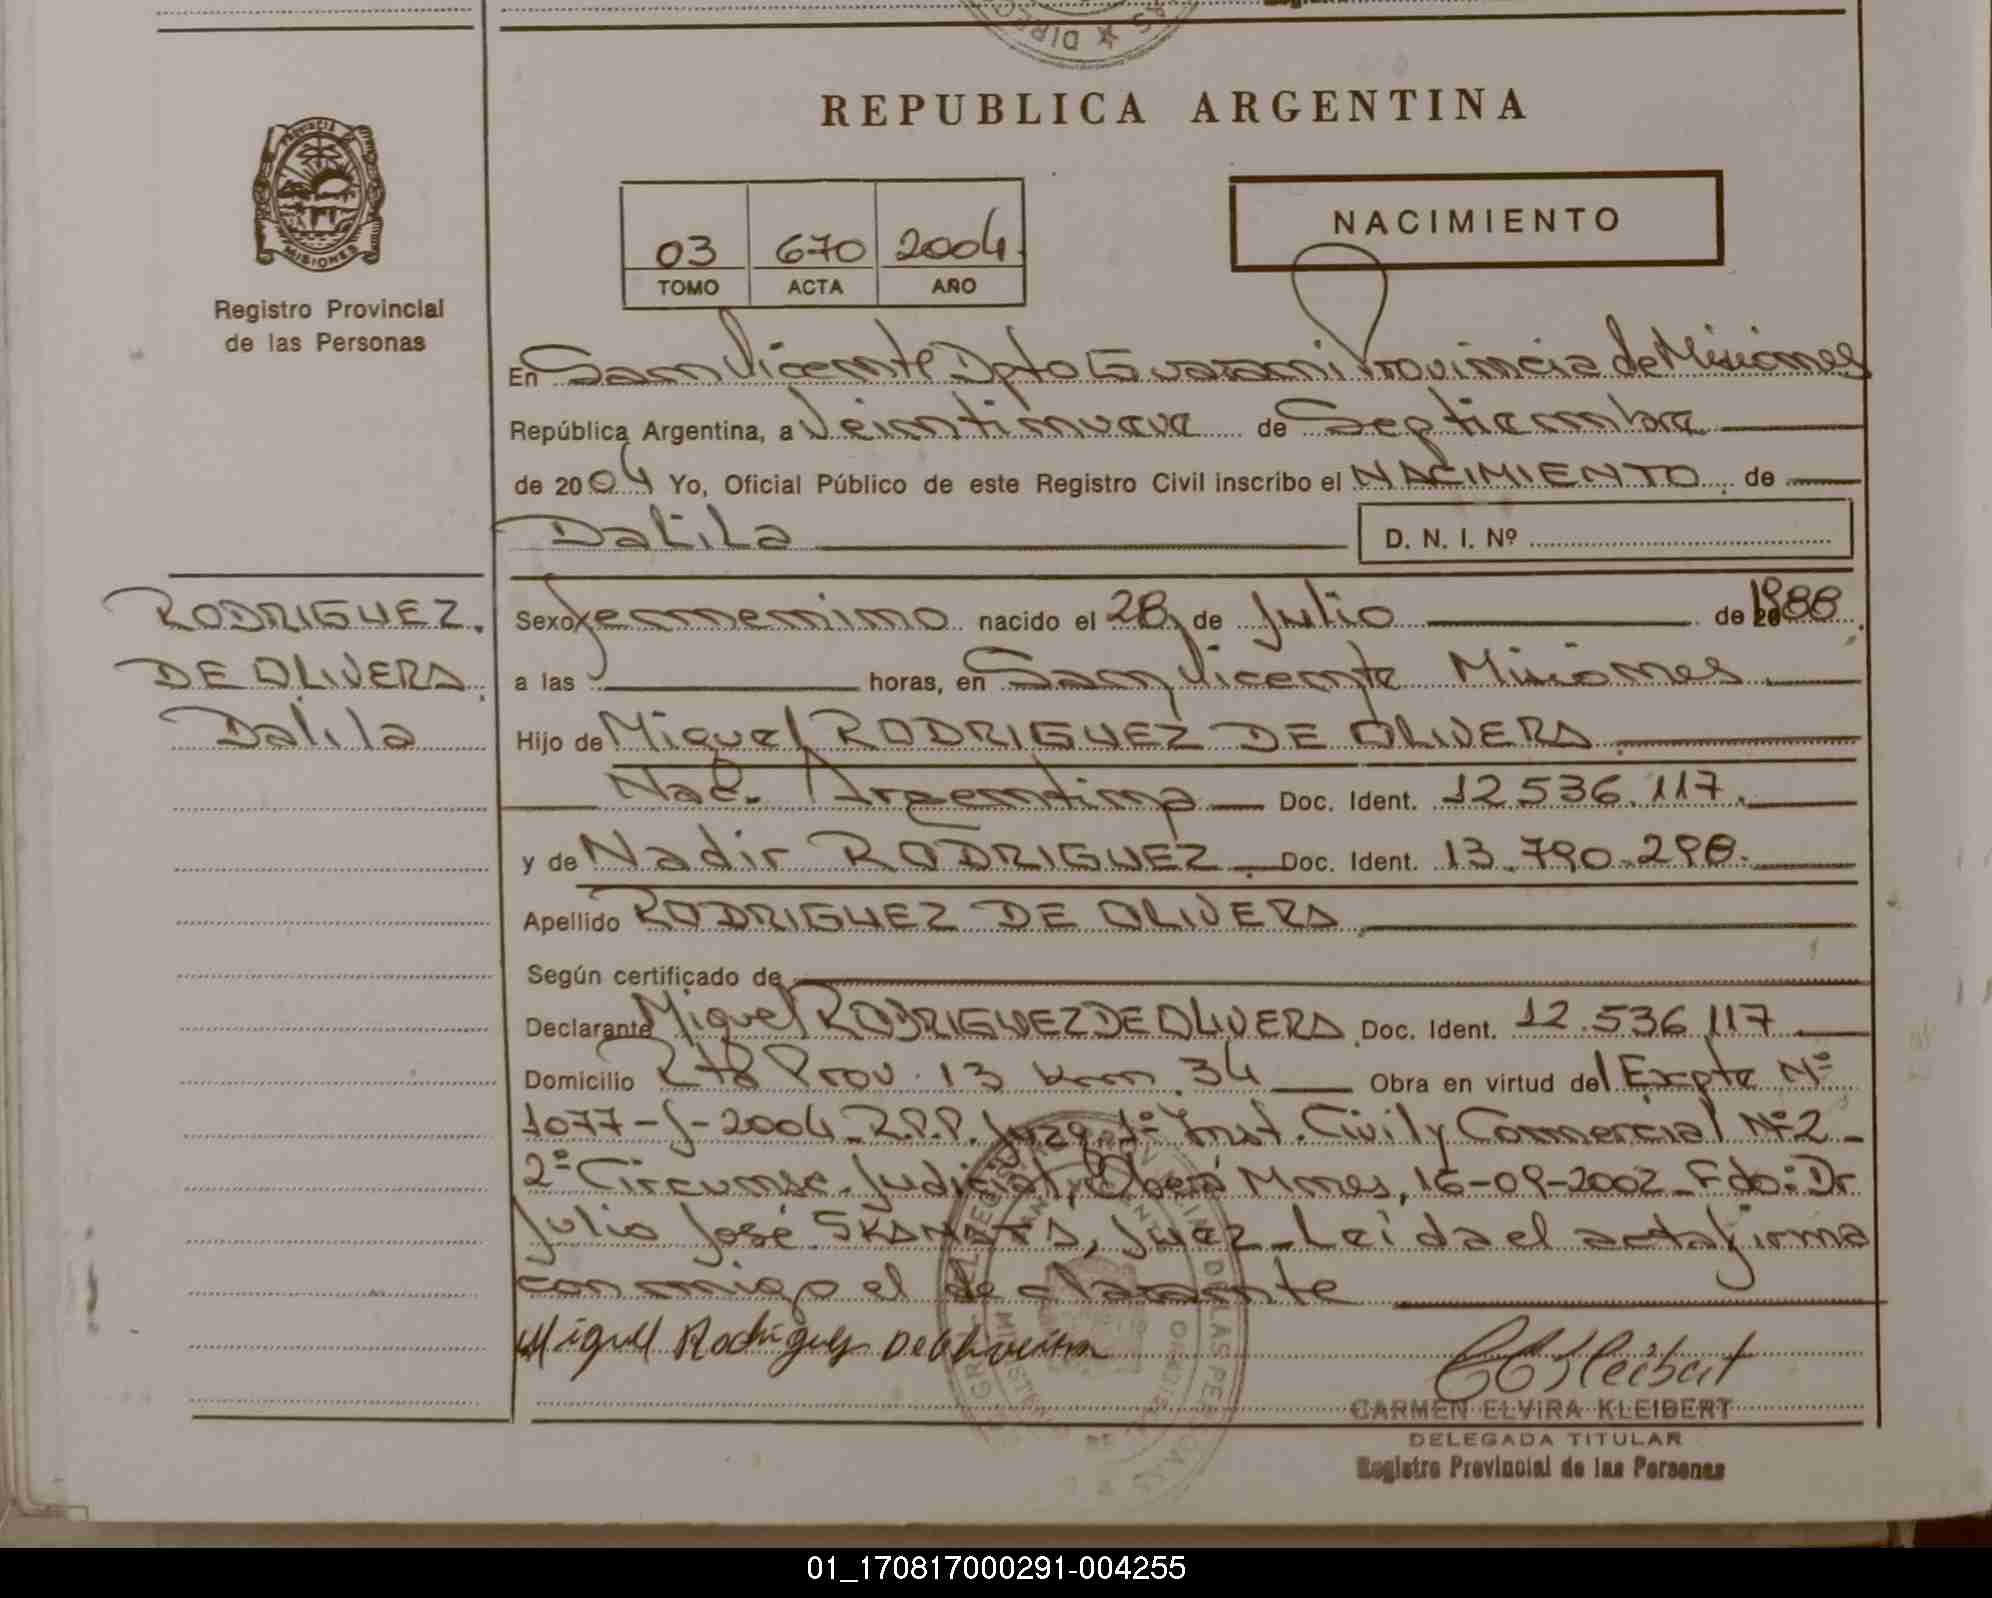 DIREC ★ AS
REPUBLICA ARGENTINA
PROVINCIA DE
MISIONES
Registro Provincial
de las Personas
03 670 2004
TOMO ACTA AÑO
NACIMIENTO
En San Vicente Dpto Guarani Provincia de Misiones
República Argentina, a Veintinueve de Septiembre
de 2004 Yo, Oficial Público de este Registro Civil inscribo el NACIMIENTO de
Dalila
D. N. I. Nº
RODRIGUEZ
DE OLIVERA
Dalila
Sexo femenino nacido el 28 de Julio de 1988
a las horas, en San Vicente Misiones
Hijo de Miguel RODRIGUEZ DE OLIVERA
Nac. Argentina Doc. Ident. 12.536.117.
y de Nadir RODRIGUEZ Doc. Ident. 13.790.298.
Apellido RODRIGUEZ DE OLIVERA
Según certificado de
Declarante Miguel RODRIGUEZ DE OLIVERA Doc. Ident. 12.536.117
Domicilio Rta Prov. 13 Km. 34 Obra en virtud del Expte Nº
1077-J-2004_R.P.P. Juzg. 1º Inst. Civil y Commercial Nº2_
2º Circunsc. Judicial, Oberá Mnes, 16-09-2002_Fdo: Dr
Julio José, Juez_Leída el acta firma
conmigo el declarante
Miguel Rodriguez De Oliveira
CKleibert
CARMEN ELVIRA KLEIBERT
DELEGADA TITULAR
Registro Provincial de las Personas
01_170817000291-004255